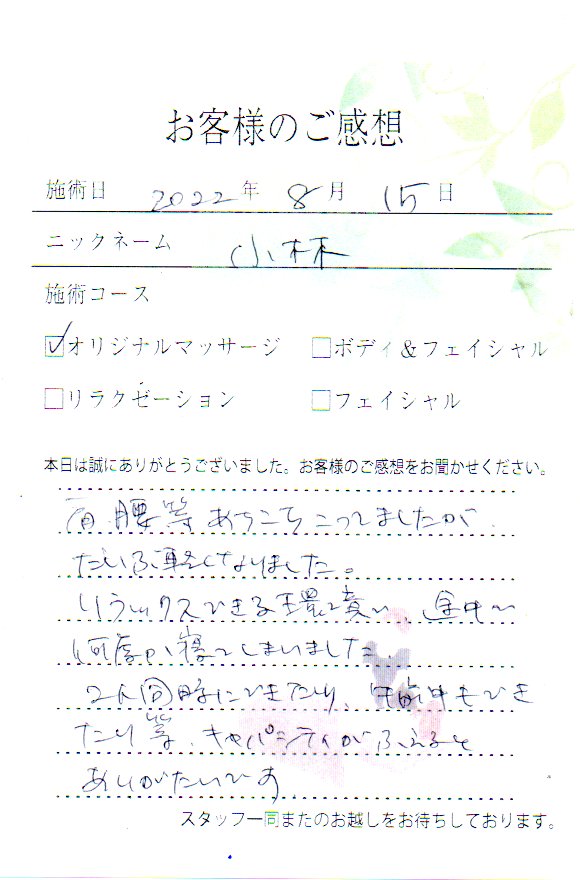 お客様のご感想
施術日 2022年 8月 15日
ニックネーム 小林
施術コース
☑オリジナルマッサージ □ボディ&フェイシャル
□リラクゼーション □フェイシャル
本日は誠にありがとうございました。お客様のご感想をお聞かせください。
肩、腰等あちこちこってましたが、
だいぶ軽くなりました。
リラックスできる環境で、途中で
何度か寝てしまいました。
2人同時にできたり、午前中もでき
たり等、キャパシティがふえると
ありがたいです。
スタッフ一同またのお越しをお待ちしております。